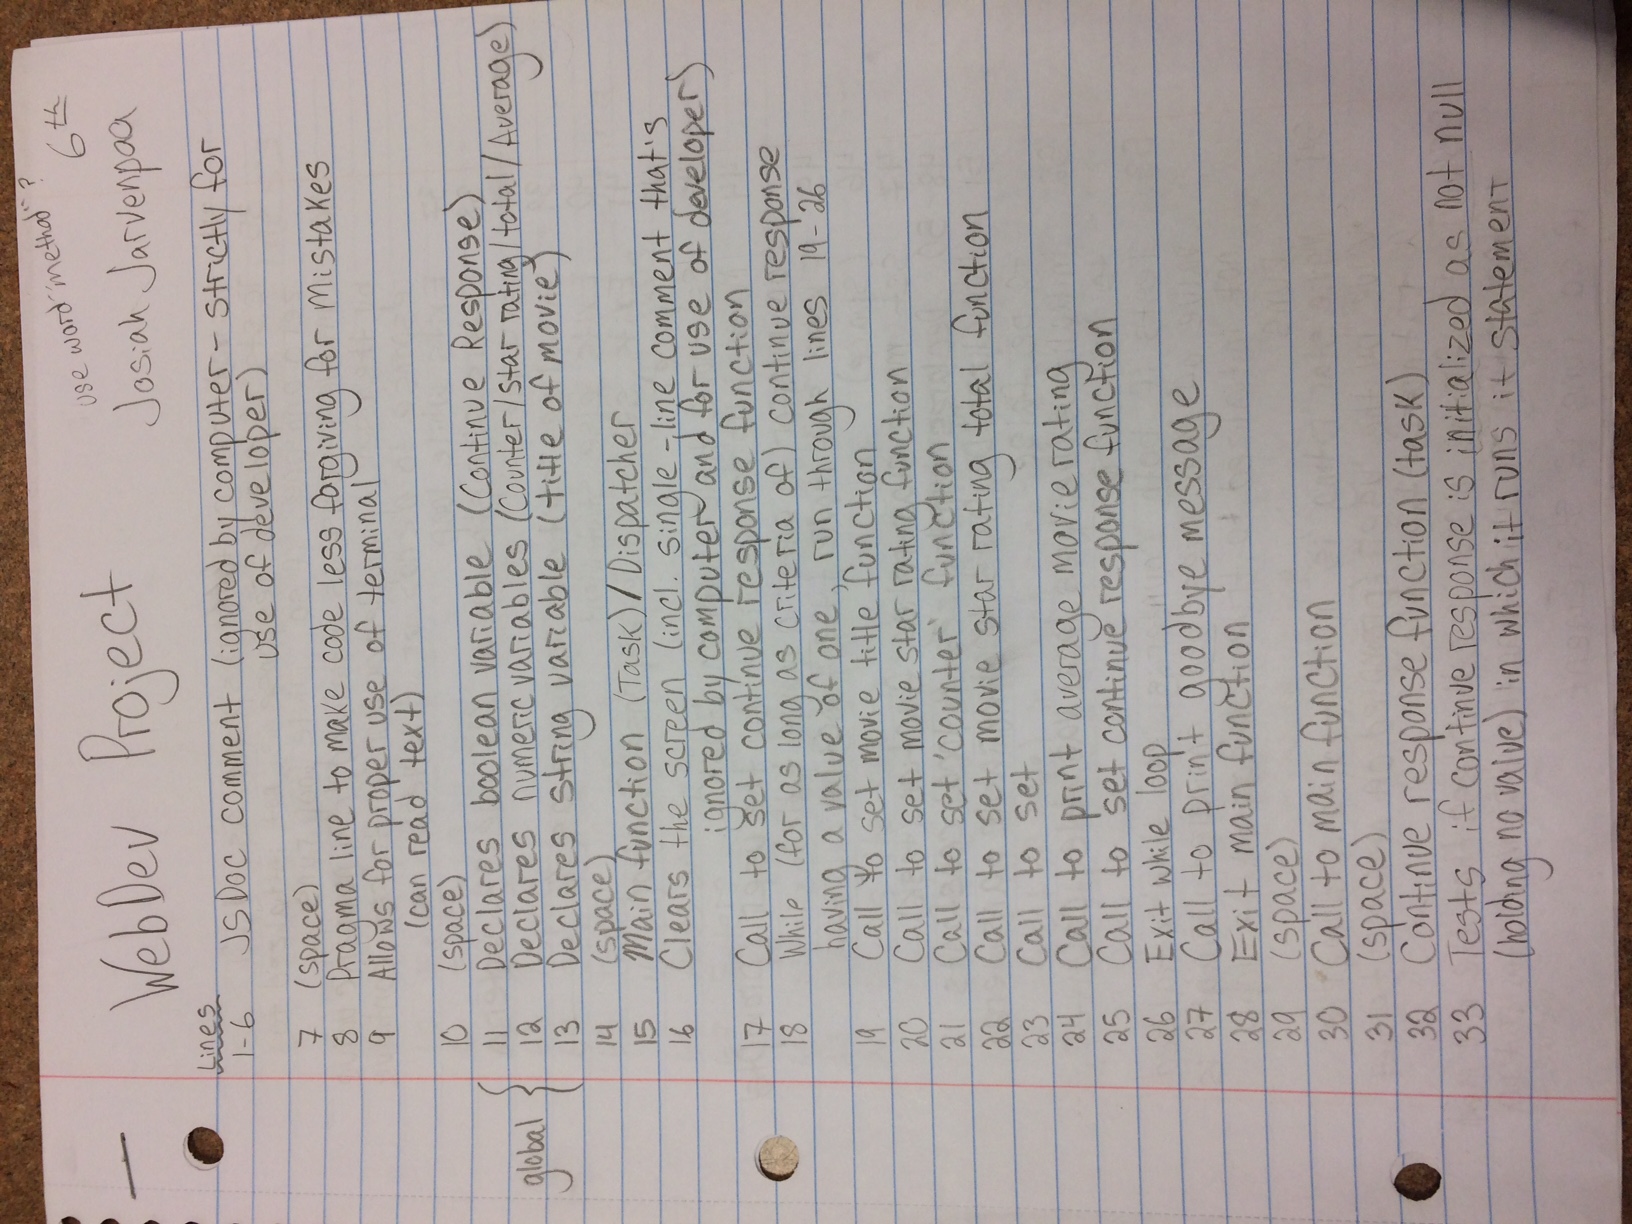 use word "method"?
WebDev Project
Josiah Jarvenpaa 6th
Lines
1-6 JSDoc comment (ignored by computer - strictly for
use of developer)
7 (space)
8 Pragma line to make code less forgiving for mistakes
9 Allows for proper use of terminal
(can read text)
10 (space)
global { 11 Declares boolean variable (Continue Response)
12 Declares numeric variables (Counter/star rating/total/Average)
13 Declares string variable (title of movie)
14 (space)
15 Main function (Task)/Dispatcher
16 Clears the screen (incl. single-line comment that's
ignored by computer and for use of developer)
17 Call to set continue response function
18 While (for as long as criteria of) continue response
having a value of one, run through lines 19-26
19 Call to set movie title function
20 Call to set movie star rating function
21 Call to set 'counter' function
22 Call to set movie star rating total function
23 Call to set
24 Call to print average movie rating
25 Call to set continue response function
26 Exit while loop
27 Call to print goodbye message
28 Exit main function
29 (space)
30 Call to main function
31 (space)
32 Continue response function (task)
33 Tests if continue response is initialized as not null
(holding no value) in which it runs it statement